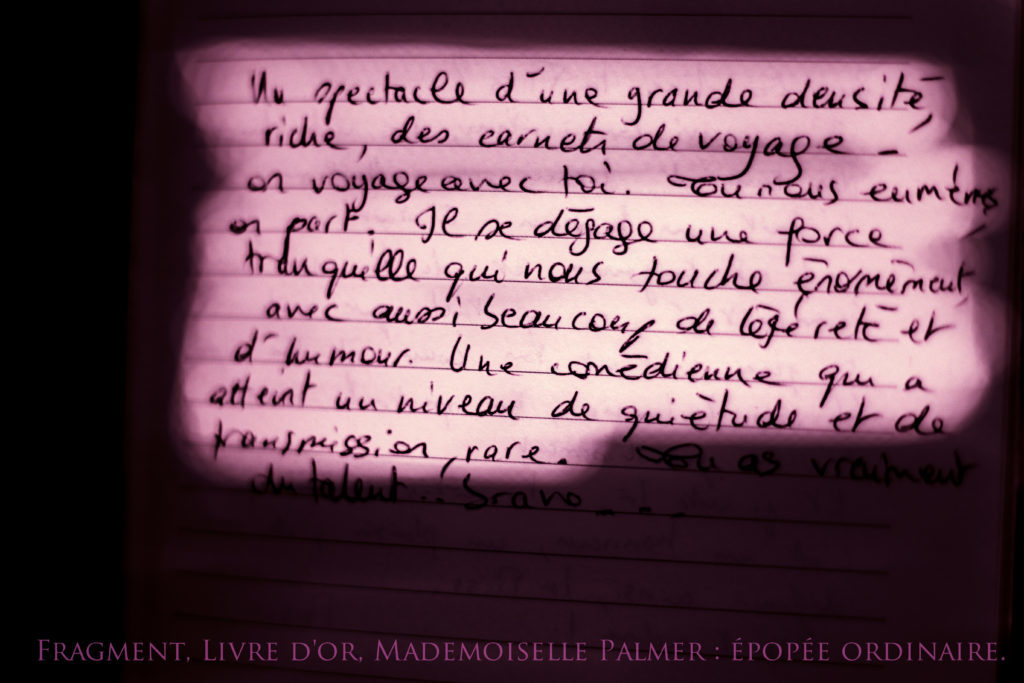 Un spectacle d'une grande densité,
riche, des carnets de voyage -
on voyage avec toi. Tu nous emmènes,
on part. Il se dégage une force
tranquille qui nous touche énormément,
avec aussi beaucoup de légèreté et
d'humour. Une comédienne qui a
atteint un niveau de quiétude et de
transmission, rare. Tu as vraiment
du talent... bravo....
FRAGMENT, LIVRE D'OR, MADEMOISELLE PALMER : ÉPOPÉE ORDINAIRE.